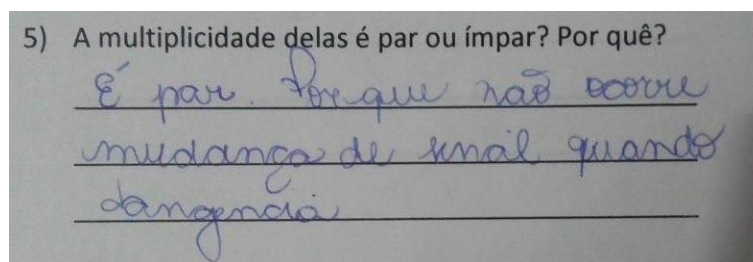 5) A multiplicidade delas é par ou ímpar? Por quê?
É par. Porque não ocorre
mudança de sinal quando
tangencia